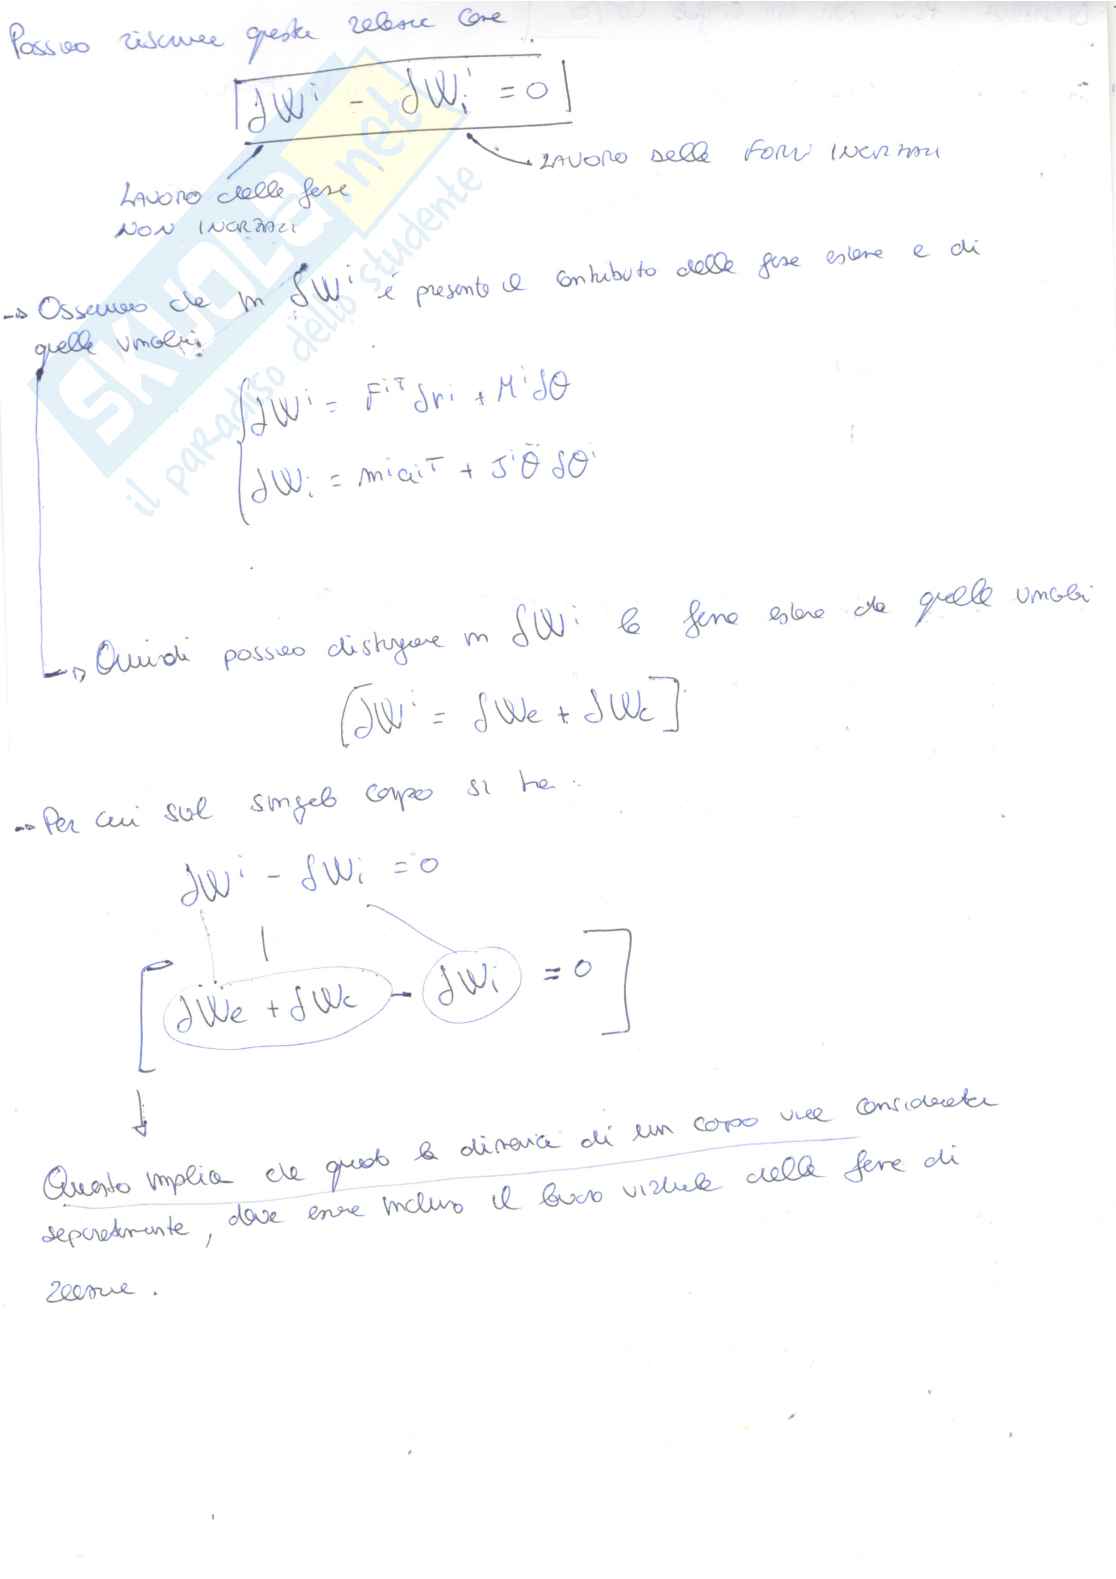 Possiamo riscrivere questa relazione come
δWⁱ - δWᵢⁱ = 0
LAVORO DELLE FORZE INERZIALI
LAVORO delle forze
NON INERZIALI
→ Osserviamo che in δWⁱ é presente il contributo delle forze esterne e di
quelle vincolari
δWⁱ = Fⁱᵀ δri + Mⁱ δθ
δWᵢ = mⁱaiᵀ + Jⁱθ̈ δθⁱ
→ Quindi possiamo distinguere in δWⁱ le forze esterne da quelle vincolari
[δWⁱ = δWe + δWc]
→ Per cui sul singolo corpo si ha :
δWⁱ - δWᵢ = 0
[δWe + δWc - δWᵢ = 0]
Questo implica che quando la dinamica di un corpo viene considerata
separatamente, deve essere incluso il lavoro virtuale delle forze di
reazione .
SKUOLA.net
il paradiso dello studente